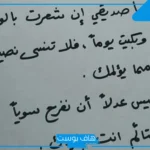 أ صديقي إن شعرت بالو
وبكيت يوماً، فلا تنسى نصيـ
مما يؤلمك.
ليس عدلاً أن نفرح سوياً
تتألم انت
هاف بوست